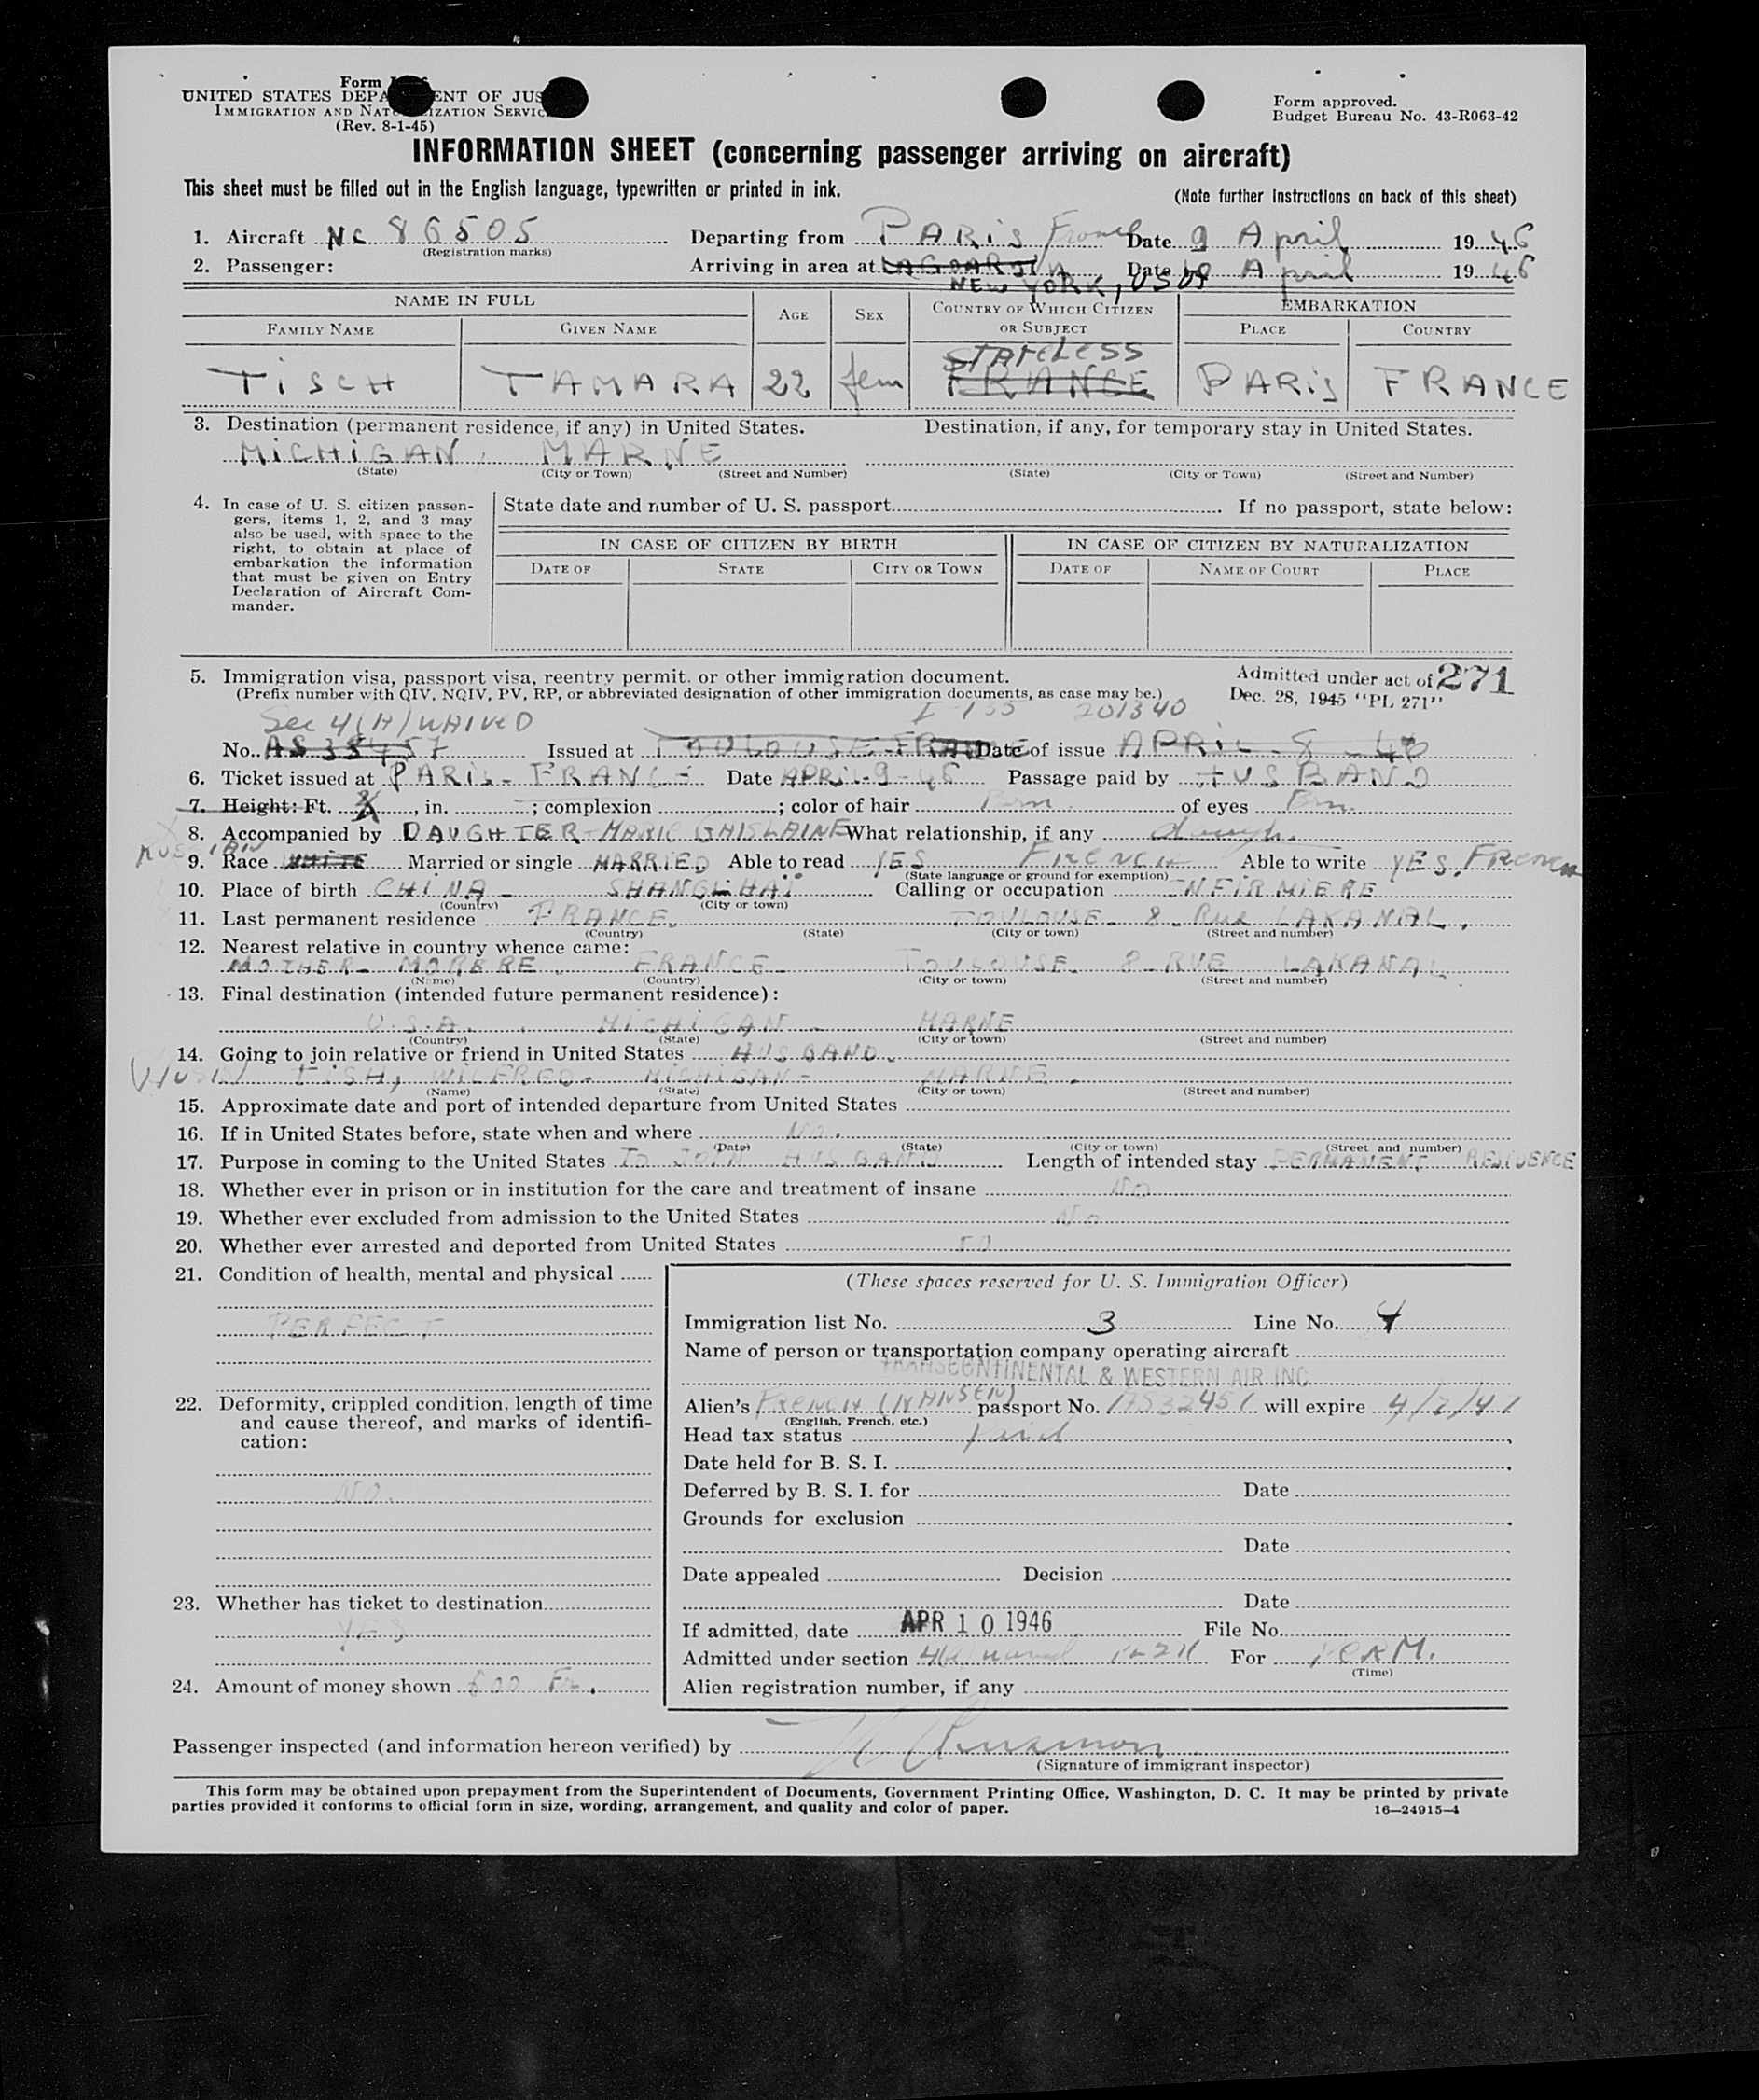 Form
UNITED STATES DEPA ENT OF JUS
IMMIGRATION AND NAT IZATION SERVIC
(Rev. 8-1-45)
Form approved.
Budget Bureau No. 43-R063-42
INFORMATION SHEET (concerning passenger arriving on aircraft)
This sheet must be filled out in the English language, typewritten or printed in ink.
(Note further instructions on back of this sheet)
1. Aircraft NC 86505 Departing from PARIS France Date 9 April 1946
(Registration marks)
2. Passenger: Arriving in area at LAGOARDIA Date 10 April 1946
NEW YORK, USA
NAME IN FULL AGE SEX COUNTRY OF WHICH CITIZEN OR SUBJECT EMBARKATION
FAMILY NAME GIVEN NAME PLACE COUNTRY
STATELESS
TISCH TAMARA 22 fem FRANCE PARIS FRANCE
3. Destination (permanent residence, if any) in United States. Destination, if any, for temporary stay in United States.
MICHIGAN, MARNE
(State) (City or Town) (Street and Number) (State) (City or Town) (Street and Number)
4. In case of U. S. citizen passengers, items 1, 2, and 3 may also be used, with space to the right, to obtain at place of embarkation the information that must be given on Entry Declaration of Aircraft Commander.
State date and number of U. S. passport If no passport, state below:
IN CASE OF CITIZEN BY BIRTH IN CASE OF CITIZEN BY NATURALIZATION
DATE OF STATE CITY OR TOWN DATE OF NAME OF COURT PLACE
5. Immigration visa, passport visa, reentry permit, or other immigration document.
(Prefix number with QIV, NQIV, PV, RP, or abbreviated designation of other immigration documents, as case may be.)
Admitted under act of 271
Dec. 28, 1945 "PL 271"
Sec 4(A) WAIVED 201340
No. Issued at TOULOUSE-FRANCE Date of issue APRIL-8-46
6. Ticket issued at PARIS-FRANCE Date APRIL-9-46 Passage paid by HUSBAND
7. Height: Ft. , in. ; complexion ; color of hair Brn of eyes Brn
8. Accompanied by DAUGHTER-MARIE GHISLAINE What relationship, if any daugh.
RUSSIAN
9. Race WHITE Married or single MARRIED Able to read YES FRENCH Able to write YES. French
(State language or ground for exemption)
10. Place of birth CHINA- SHANGHAI Calling or occupation INFIRMIERE
(Country) (City or town)
11. Last permanent residence FRANCE. TOULOUSE- 8- Rue LAKANAL.
(Country) (State) (City or town) (Street and number)
12. Nearest relative in country whence came:
MOTHER- MORERE. FRANCE- TOULOUSE- 8-RUE LAKANAL
(Name) (Country) (City or town) (Street and number)
13. Final destination (intended future permanent residence):
U.S.A. MICHIGAN- MARNE
(Country) (State) (City or town) (Street and number)
14. Going to join relative or friend in United States HUSBAND.
TISH, WILFRED. MICHIGAN- MARNE.
(Name) (State) (City or town) (Street and number)
15. Approximate date and port of intended departure from United States
16. If in United States before, state when and where NO.
(Date) (State) (City or town) (Street and number)
17. Purpose in coming to the United States TO JOIN HUSBAND Length of intended stay PERMANENT RESIDENCE
18. Whether ever in prison or in institution for the care and treatment of insane NO
19. Whether ever excluded from admission to the United States No
20. Whether ever arrested and deported from United States
21. Condition of health, mental and physical
PERFECT
22. Deformity, crippled condition, length of time and cause thereof, and marks of identification:
NO.
23. Whether has ticket to destination
YES
24. Amount of money shown
(These spaces reserved for U. S. Immigration Officer)
Immigration list No. 3 Line No. 4
Name of person or transportation company operating aircraft
TRANSCONTINENTAL & WESTERN AIR INC
Alien's FRENCH (NANSEN) passport No. will expire
(English, French, etc.)
Head tax status Paid
Date held for B. S. I.
Deferred by B. S. I. for Date
Grounds for exclusion
Date
Date appealed Decision
Date
If admitted, date APR 10 1946 File No.
Admitted under section For PERM.
(Time)
Alien registration number, if any
Passenger inspected (and information hereon verified) by
(Signature of immigrant inspector)
This form may be obtained upon prepayment from the Superintendent of Documents, Government Printing Office, Washington, D. C. It may be printed by private
parties provided it conforms to official form in size, wording, arrangement, and quality and color of paper.
16—24915-4